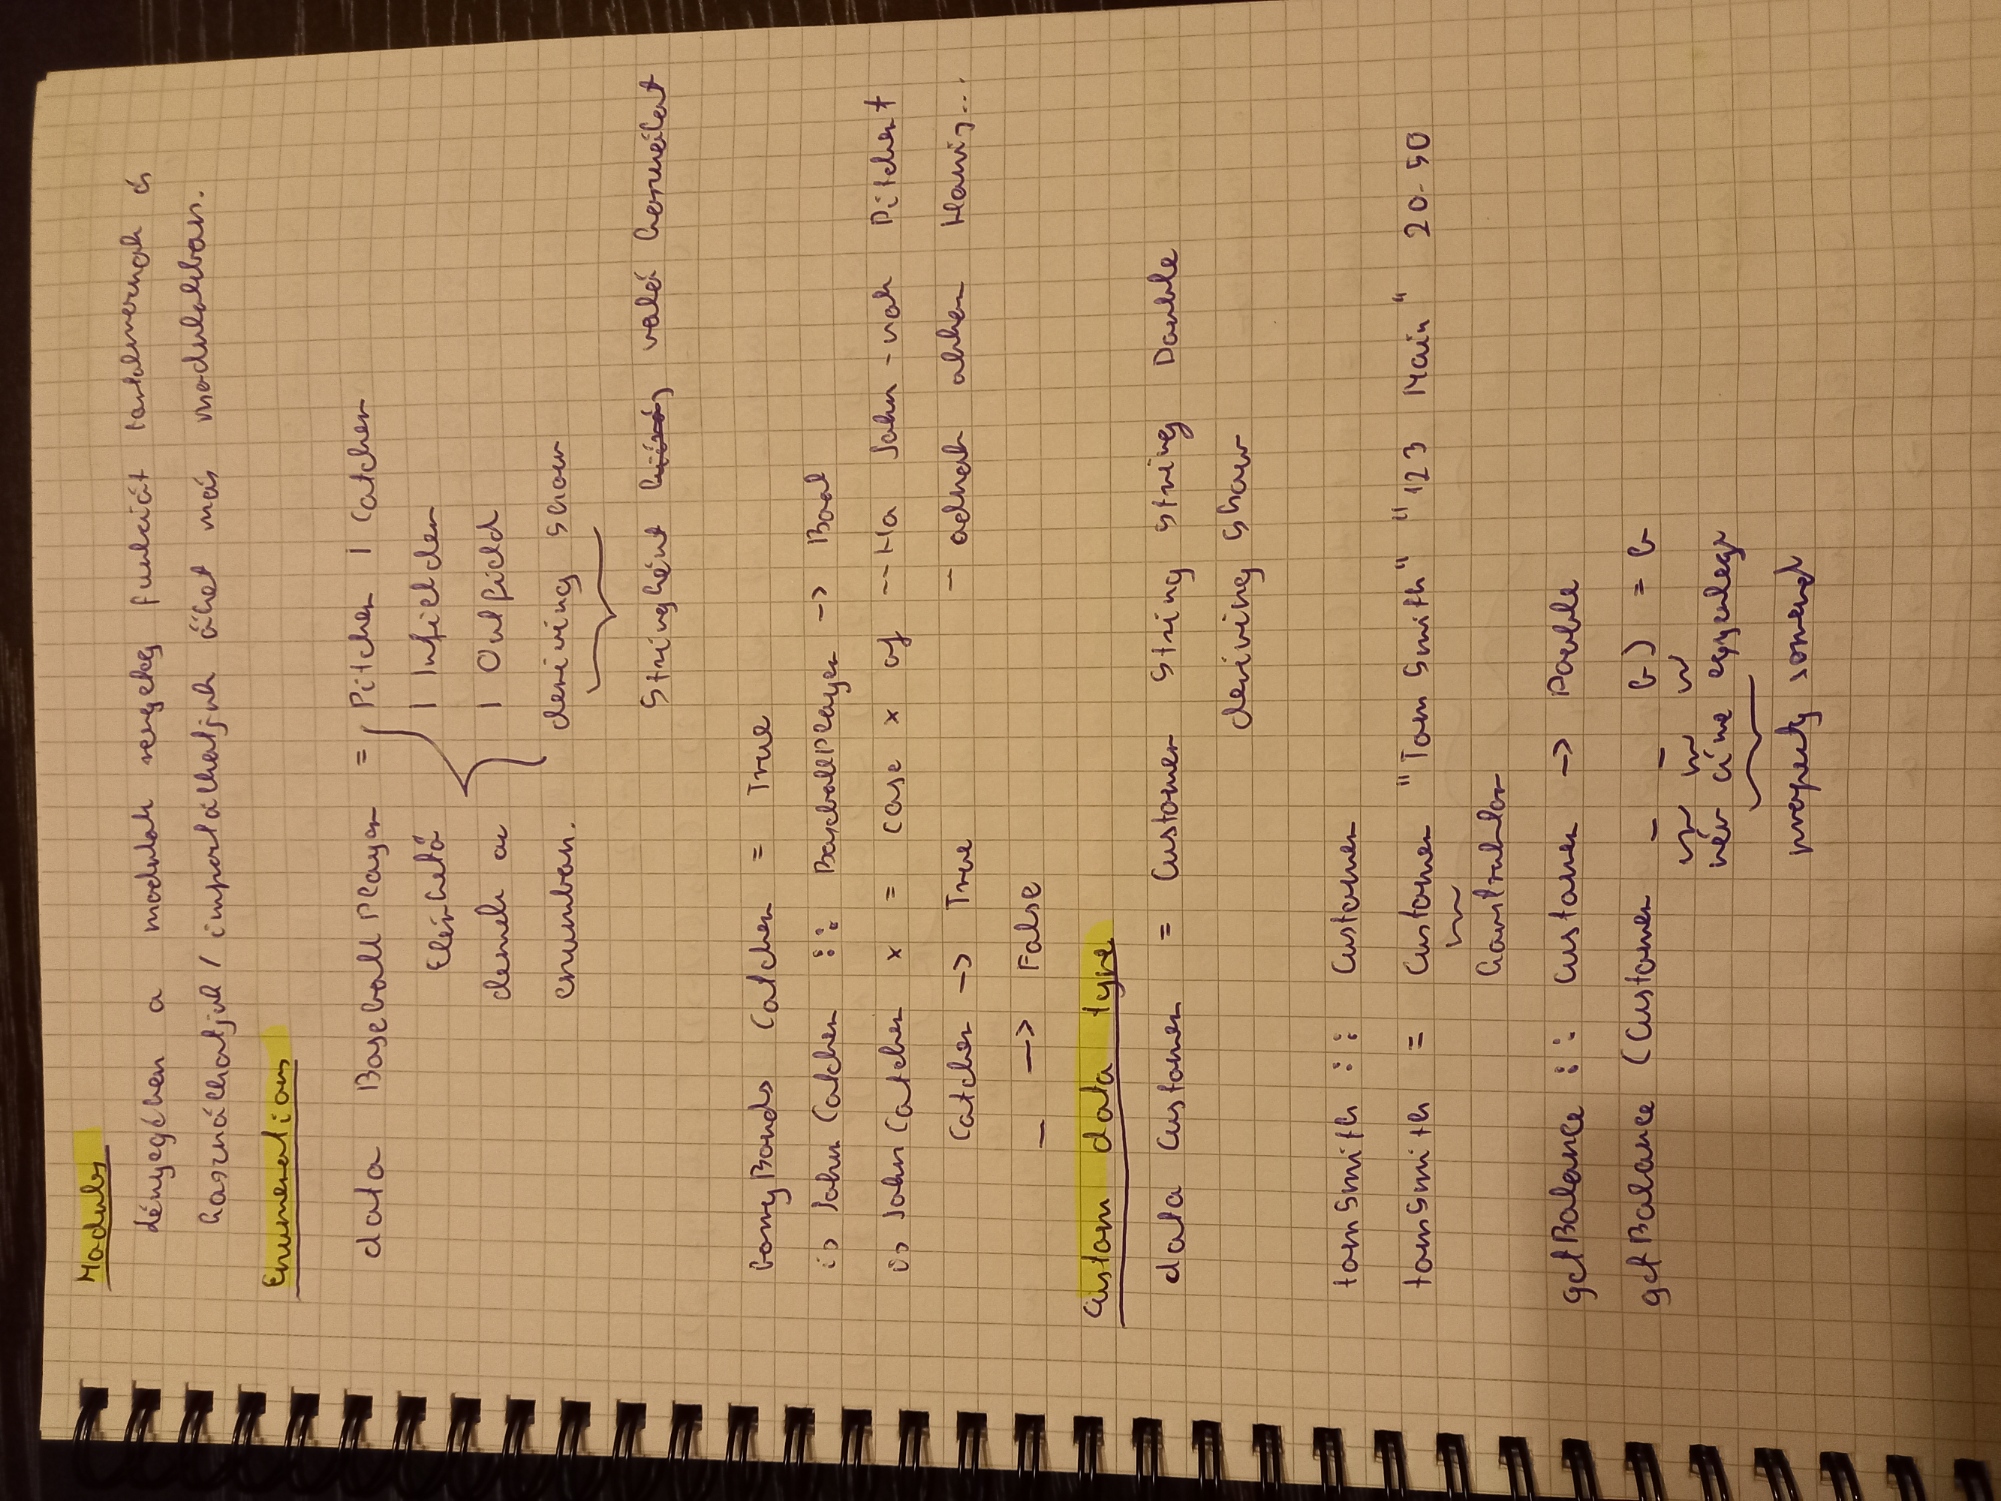 Modules
Lényegében a modulok rengeteg funkciót tartalmaznak és
használhatjuk / importálhatjuk őket más modulokban.
Enumerations
data BaseballPlayer = Pitcher | Catcher
Elérhető | Infielder
elemek az | Outfield
enumban. deriving Show
Stringként való használat
barryBonds Catcher = True
is John Catcher :: BaseballPlayer -> Bool
is John Catcher x = case x of -- Ha John-nak Pitchert
Catcher -> True - adnak akkor Hamis...
_ -> False
Custom data type
data Customer = Customer String String Double
deriving Show
tomSmith :: Customer
tomSmith = Customer "Tom Smith" "123 Main" 20.50
konstruktor
getBalance :: Customer -> Double
getBalance (Customer _ _ b) = b
név címe egyenlege
property sorrend